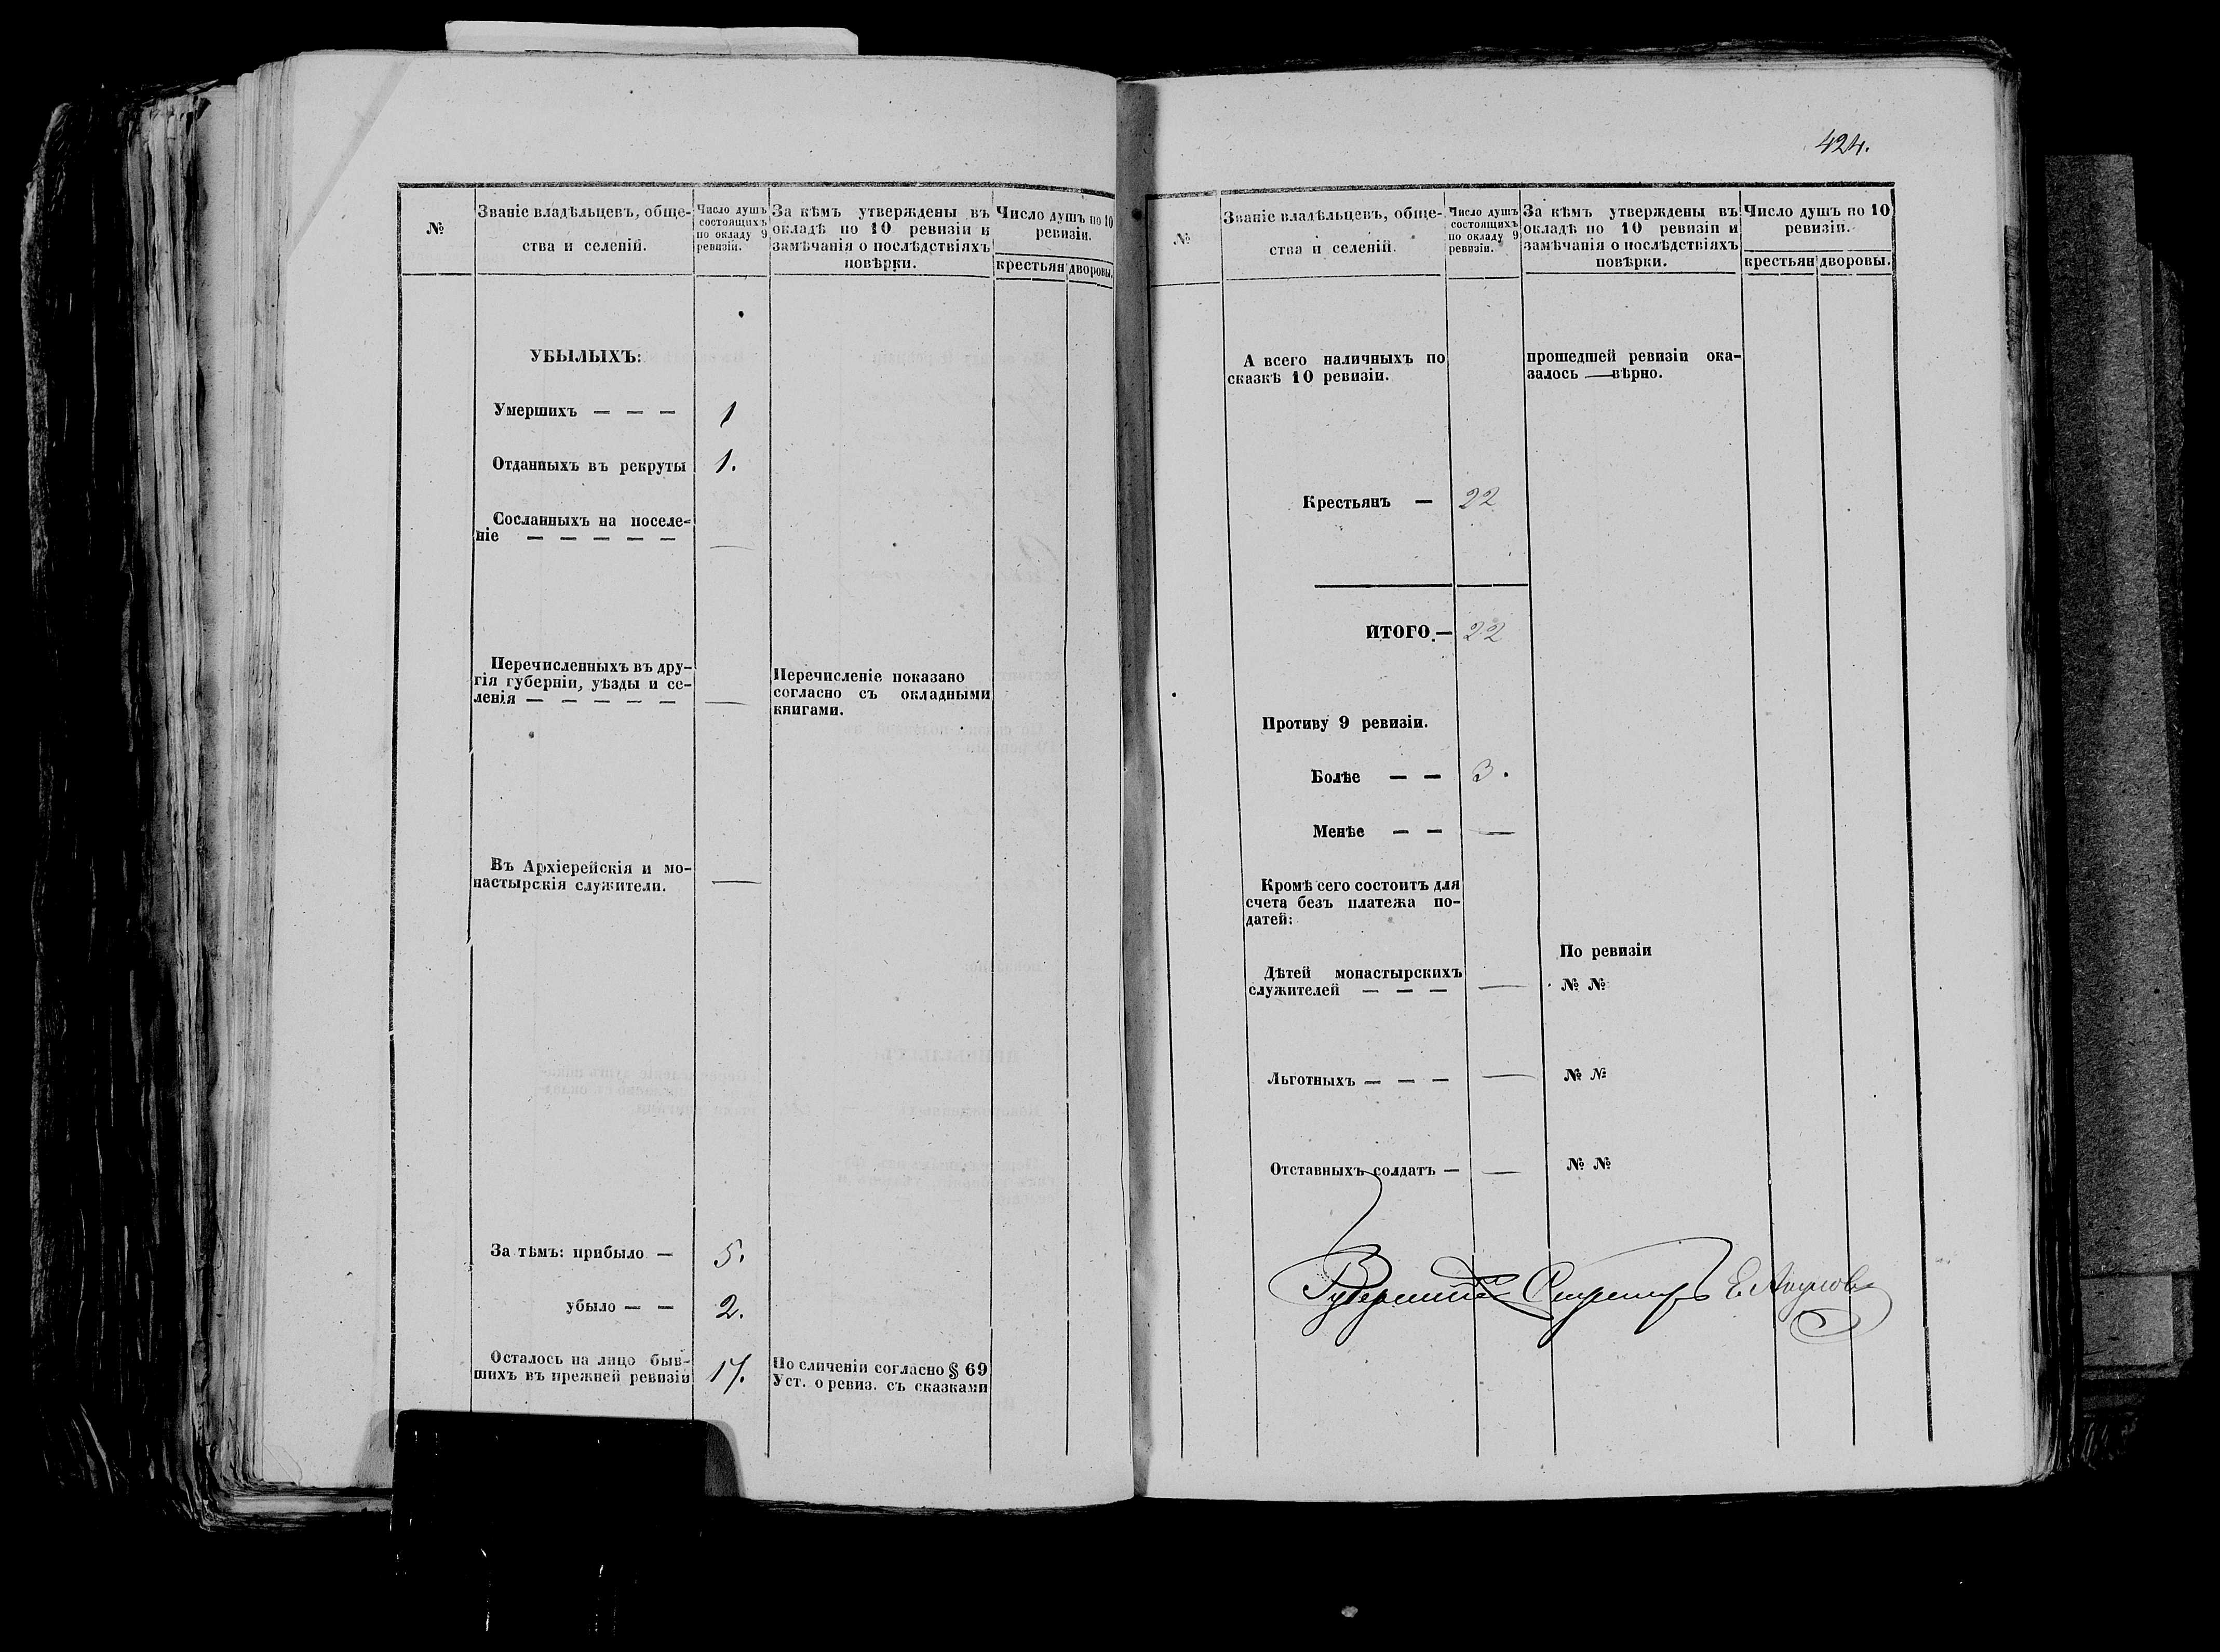 №
Званіе владѣльцевъ, обще-
ства и селеній.
Число душъ
состоящихъ
по окладу 9
ревизіи.
За кѣмъ утверждены въ
окладѣ по 10 ревизіи и
замѣчанія о послѣдствіяхъ
повѣрки.
Число душъ по 10
ревизіи.
крестьян
дворовы.
УБЫЛЫХЪ:
Умершихъ — — — 1
Отданныхъ въ рекруты 1.
Сосланныхъ на поселе-
ніе — — — — — —
Перечисленныхъ въ дру-
гія губерніи, уѣзды и се-
ленія — — — — — —
Перечисленіе показано
согласно съ окладными
книгами.
Въ Архіерейскія и мо-
настырскія служители. —
За тѣмъ: прибыло — 5.
убыло — — 2.
Осталось на лицо быв-
шихъ въ прежней ревизіи 17.
По сличеніи согласно § 69
Уст. о ревиз. съ сказками
424.
№
Званіе владѣльцевъ, обще-
ства и селеній.
Число душъ
состоящихъ
по окладу 9
ревизіи.
За кѣмъ утверждены въ
окладѣ по 10 ревизіи и
замѣчанія о послѣдствіяхъ
повѣрки.
Число душъ по 10
ревизіи.
крестьян
дворовы.
А всего наличныхъ по
сказкѣ 10 ревизіи.
прошедшей ревизіи ока-
залось — вѣрно.
Крестьянъ — 22
ИТОГО.— 22
Противу 9 ревизіи.
Болѣе — — 3.
Менѣе — — —
Кромѣ сего состоитъ для
счета безъ платежа по-
датей:
По ревизіи
Дѣтей монастырскихъ
служителей — — — — № №
Льготныхъ — — — — № №
Отставныхъ солдатъ — — № №
Губернскій Секретарь Е.